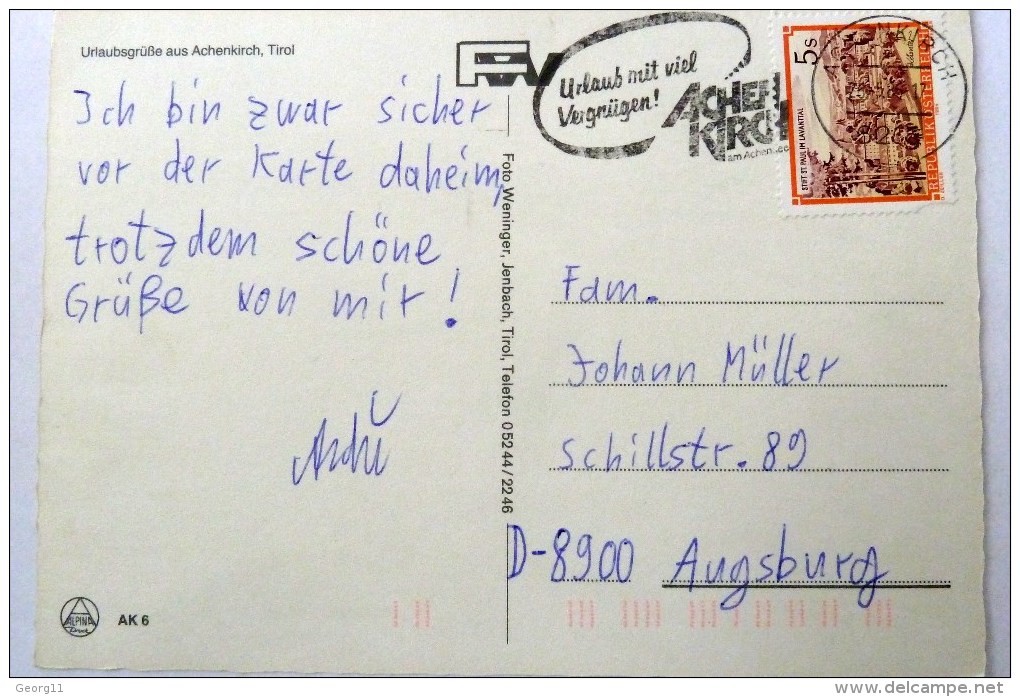 Urlaubsgrüße aus Achenkirch, Tirol
Ich bin zwar sicher
vor der Karte daheim,
trotzdem schöne
Grüße von mir!
ALPINA
Druck
AK 6
Foto Weninger, Jenbach, Tirol, Telefon 0 52 44 / 22 46
Urlaub mit viel
Vergnügen!
ACHEN
KIRCH
am Achensee
5s
STIFT ST. PAUL IM LAVANTTAL
REPUBLIK ÖSTERREICH
Fam.
Johann Müller
Schillstr. 89
D-8900 Augsburg
Georg11
www.delcampe.net